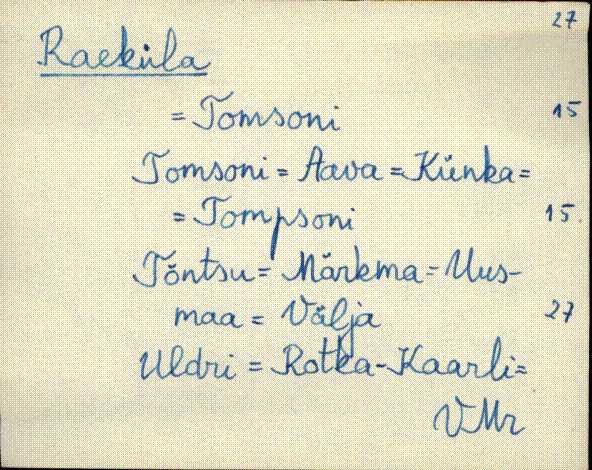 27
Raeküla
= Tomsoni 15
Tomsoni = Aava = Künka =
= Tompsoni 15.
Tõntsu = Märkma = Uus-
maa = Välja 27
Uldri = Rotka-Kaarli =
VMr